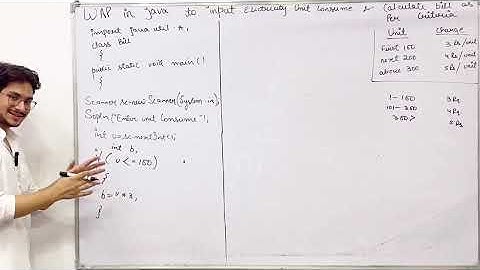 WAP in java to input Electricity Unit Consume & Calculate bill as
Per Criteria
import java.util.*;
class Bill
{
public static void main()
{
Scanner sc=new Scanner(System.in);
Sopln("Enter unit Consume");
int u=sc.nextInt();
int b;
if(u<=100)
b=u*3;
}
Unit Charge
first 100 3 Rs/unit
next 200 4 Rs/unit
above 300 5 Rs/unit
1-100 3 Rs
101-300 4 Rs
300> Rs